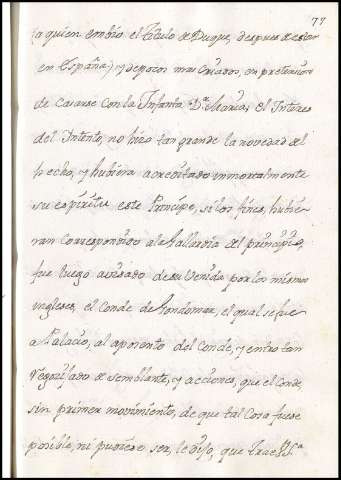 77
(a quien embio el Titulo de Duque, despues de estar
en España) y de pocos mas Criados, con pretension
de Casarse con la Infanta Dª Maria, el Interes
del Intento, no hizo tan grande la novedad del
hecho, y hubiera acreditado inmortalmente
su espiritu este Principe, si los fines, hubie
ran correspondido a la Gallardia del principio,
fue luego avisado de su Venida por los mismos
ingleses, el Conde de Gondomar, el qual se fue
a Palacio, al aposento del Conde, y entro tan
regocijado de semblante, y acciones, que el Conde,
sin primer movimiento, de que tal Cosa fuese
posible, ni pudiese ser, le dijo, que trae V.S.ª